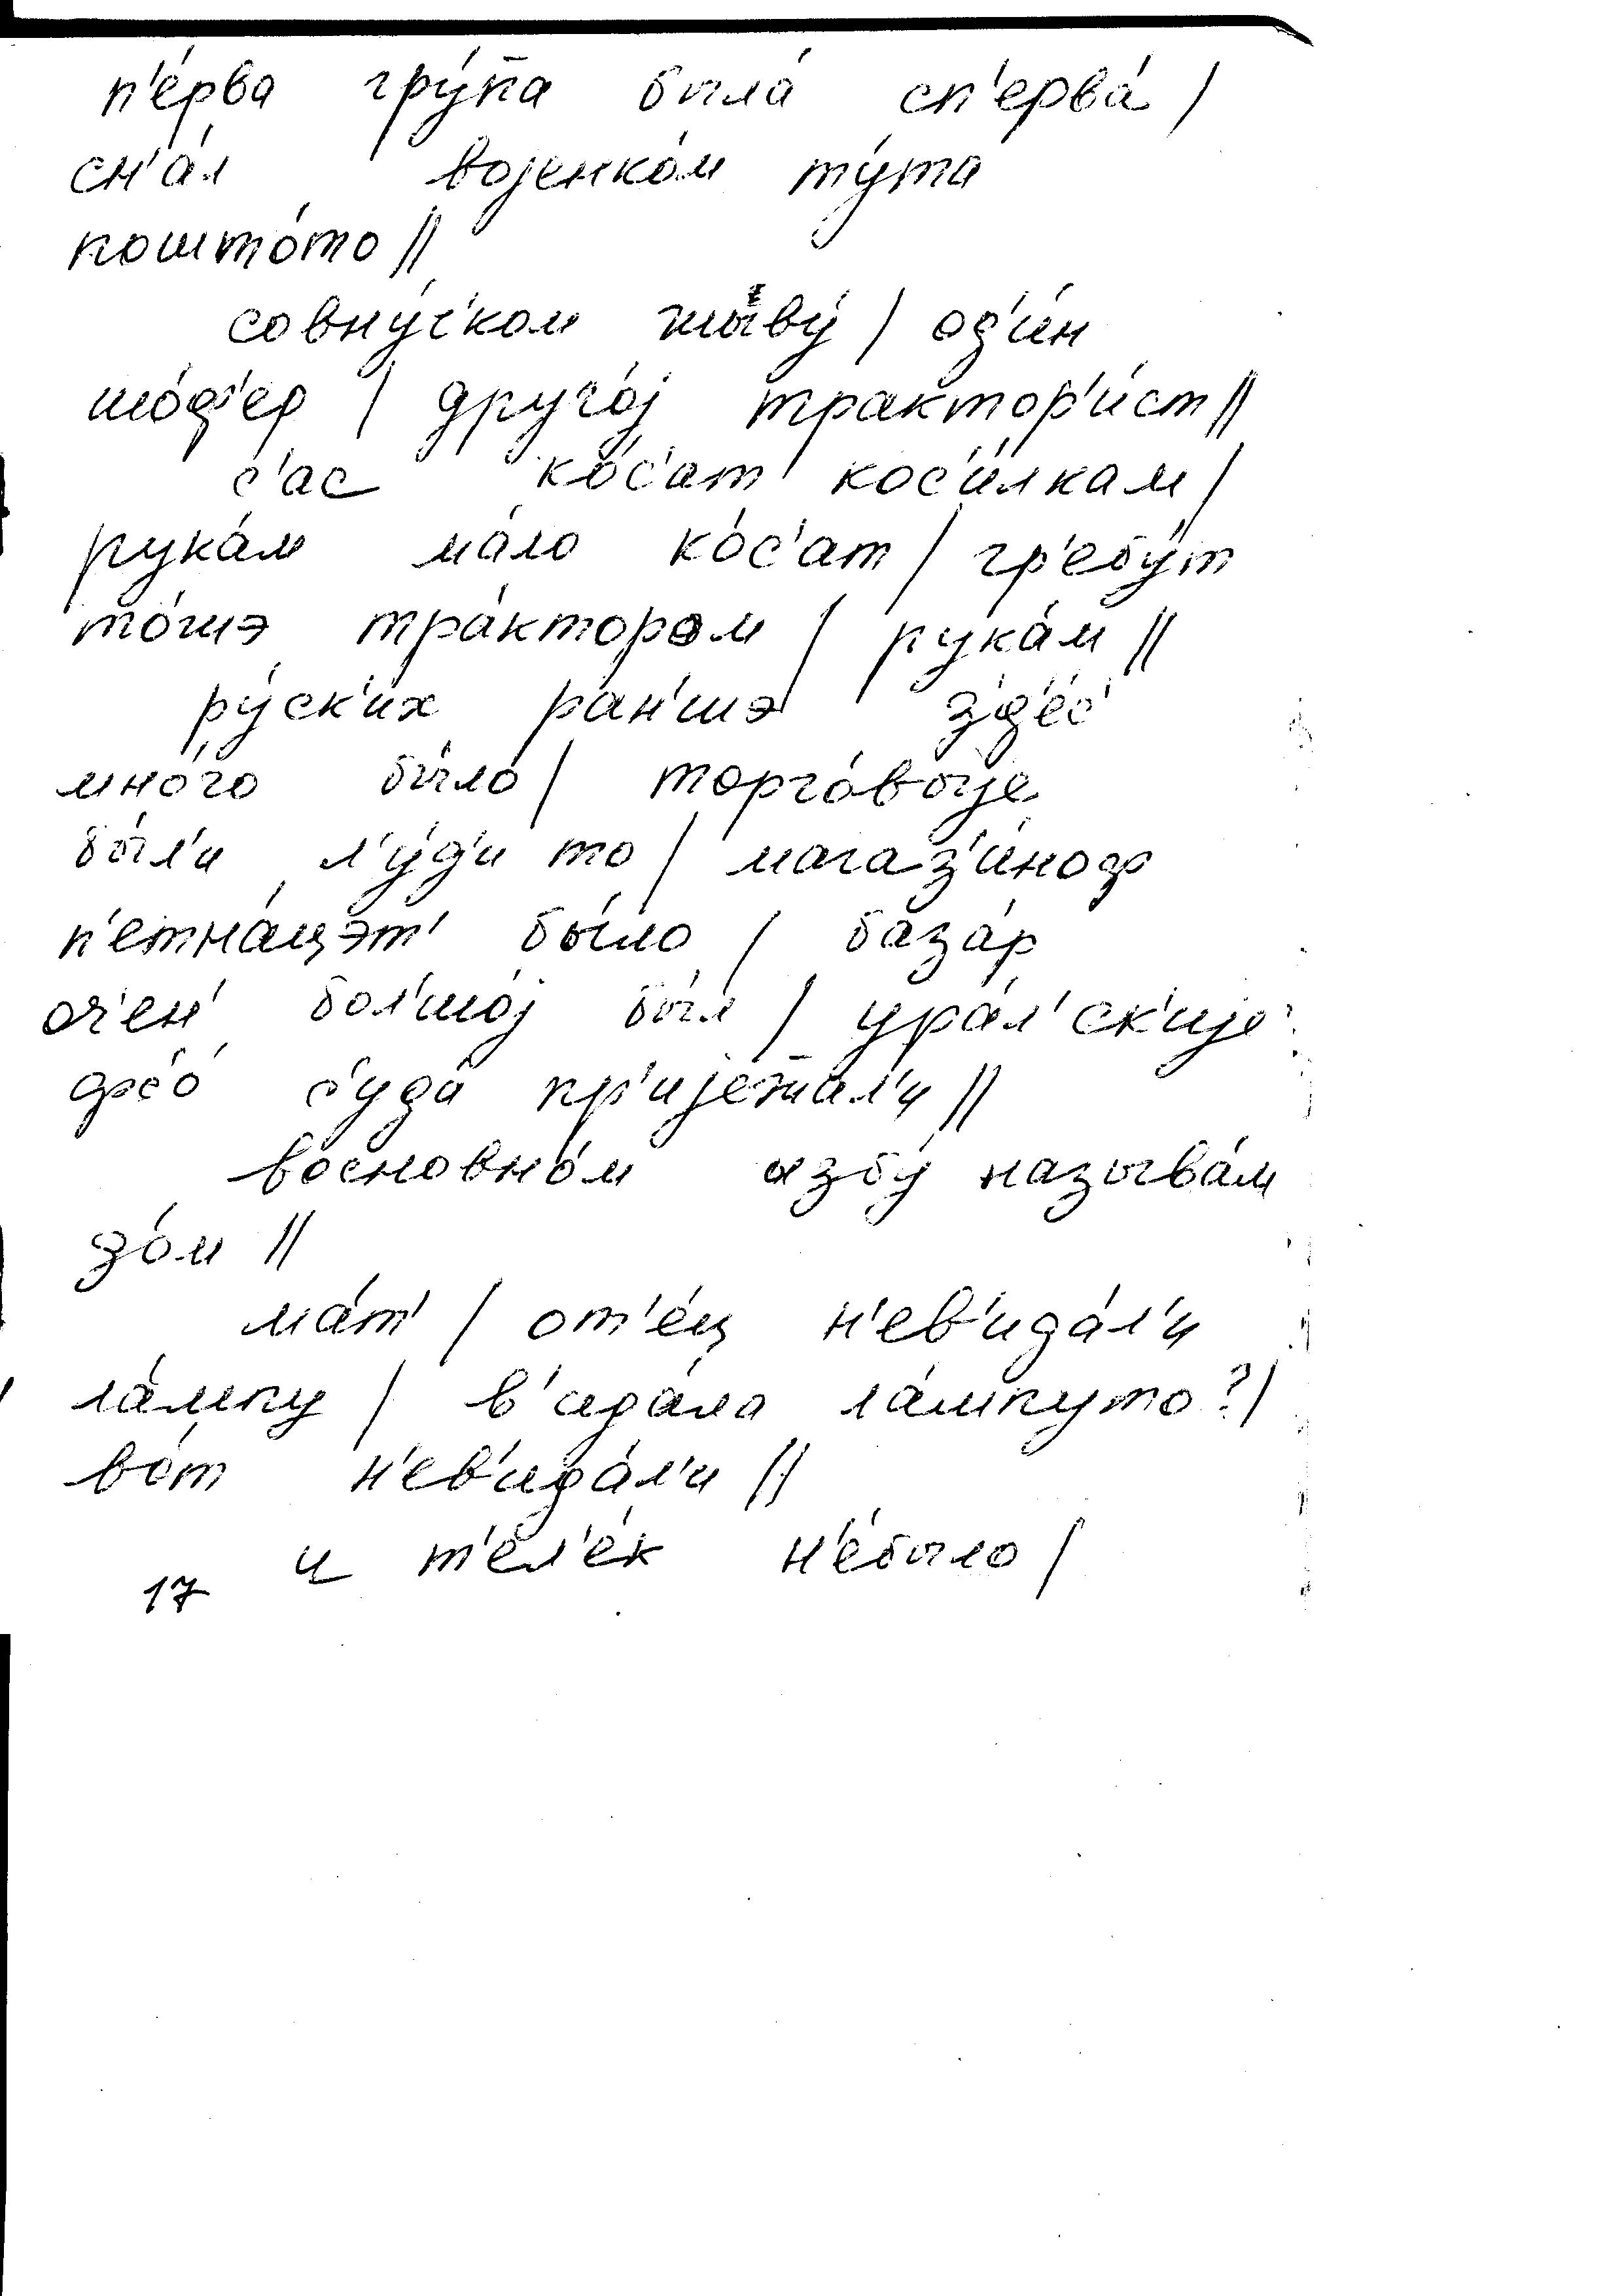 п'е́рва гру́п̄а была́ сп'ерва́ /
сн'а́л војенко́м ту́та
пошто́то //
совну́с'ком жыву́ / од'и́н
шо́ф'ер / друго́ј трактор'и́ст //
с'ас ко́с'ат кос'и́лкам /
рука́м ма́ло ко́с'ат / гр'ебу́т
то́жэ тра́ктором / рука́м //
ру́ск'их ра́н'шэ з'д'е́с'
мно́го бы́ло / торго́выје
бы́л'и л'у́д'и то / магаз'и́ноф
п'етна́цэт' бы́ло / база́р
оч'ен' бол'шо́ј бы́л / ура́л'ск'ије
фс'о́ с'уда́ пр'ије́ж̄ал'и //
восновно́м избу́ называ́м
зо́м //
ма́т' / от'е́ц н'ев'ида́л'и
ла́мпу / в'ида́ла ла́мпуто? /
во́т н'ев'ида́л'и //
и т'е́л'ек н'е́было /
17